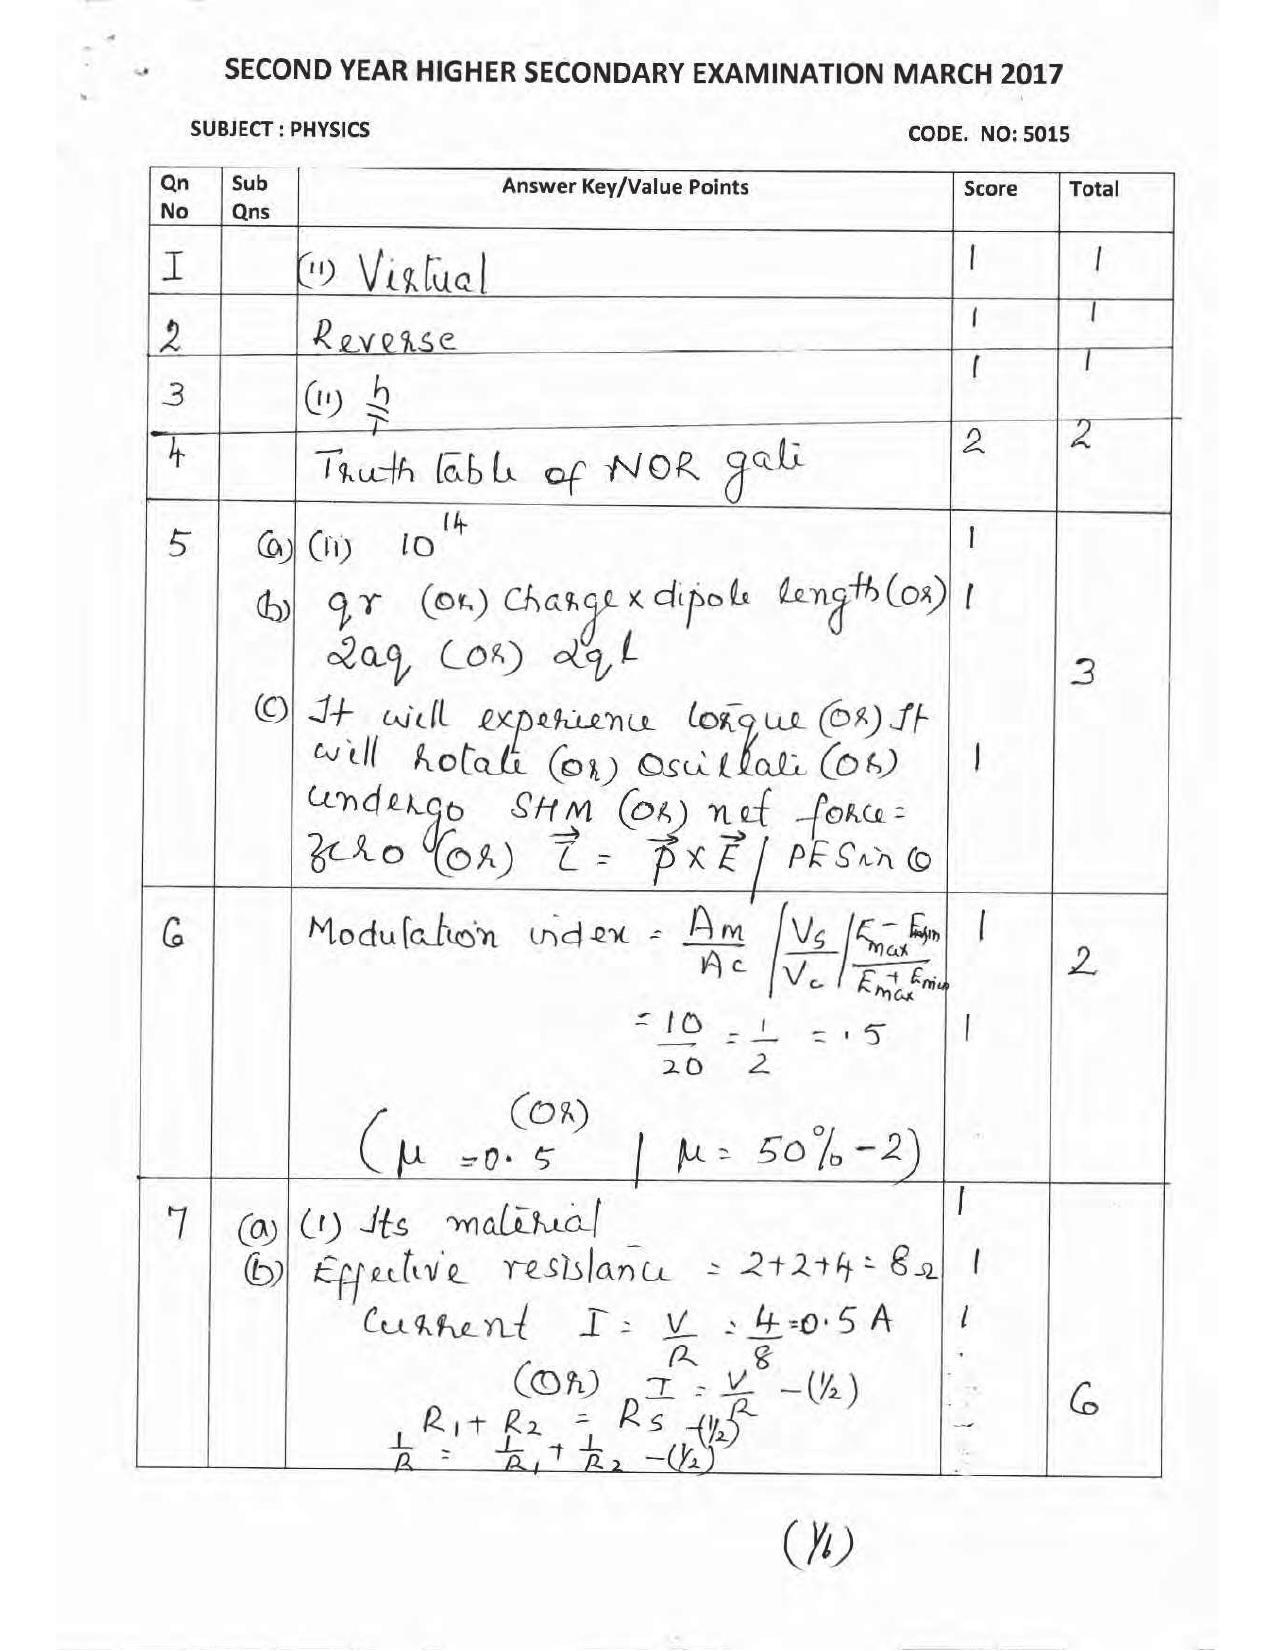 SECOND YEAR HIGHER SECONDARY EXAMINATION MARCH 2017
SUBJECT : PHYSICS CODE. NO: 5015
Qn No Sub Qns Answer Key/Value Points Score Total
I (ii) Virtual 1 1
2 Reverse 1 1
3 (ii) h/T 1 1
4 Truth table of NOR gate 2 2
5 (a) (ii) 10^14 1
(b) qr (or) charge x dipole length (or) 1
2aq (or) 2qL
3
(c) It will experience torque (or) It
will rotate (or) oscillate (or) 1
undergo SHM (or) net force =
zero (or) τ⃗ = p⃗ x E⃗ / PE Sin θ
6 Modulation index = Am/Ac / Vs/Vc / Emax - Emin/Emax + Emin 1
2
= 10/20 = 1/2 = .5 1
(or)
(μ = 0.5 / μ = 50% - 2)
7 (a) (i) Its material 1
(b) Effective resistance = 2+2+4 = 8Ω 1
Current I = V/R = 4/8 = 0.5 A 1
(or) I = V/R - (1/2)
6
R1 + R2 = Rs - (1/2)
1/R = 1/R1 + 1/R2 - (1/2)
(1/6)